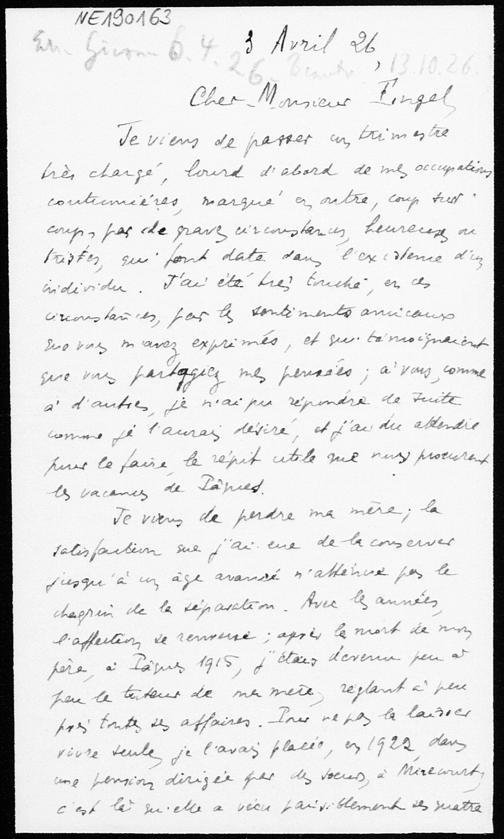 NE190163
3 Avril 26
6.4.26 13.10.26.
Cher Monsieur Engel
Je viens de passer un trimestre
très chargé, lourd d'abord de mes occupations
coutumières, marqué en outre, coup sur
coup, par de graves circonstances, heureuses ou
tristes, qui font date dans l'existence d'un
individu. J'ai été très touché, en ces
circonstances, par les sentiments amicaux
que vous m'avez exprimés, et qui témoignaient
que vous partagiez mes pensées ; à vous, comme
à d'autres, je n'ai pu répondre de suite
comme je l'aurais désiré, et j'ai dû attendre
pour le faire, le répit utile que nous procurent
les vacances de Pâques.
Je viens de perdre ma mère ; la
satisfaction que j'ai eue de la conserver
jusqu'à un âge avancé n'atténue pas le
chagrin de la séparation. Avec les années,
l'affection se renverse ; après la mort de mon
père, à Pâques 1915, j'étais devenu peu à
peu le tuteur de ma mère, réglant à peu
près toutes ses affaires. Pour ne pas la laisser
vivre seule, je l'avais placée, en 1922 dans
une pension dirigée par des Sœurs, à Mirecourt,
c'est là qu'elle a vécu paisiblement ses quatre